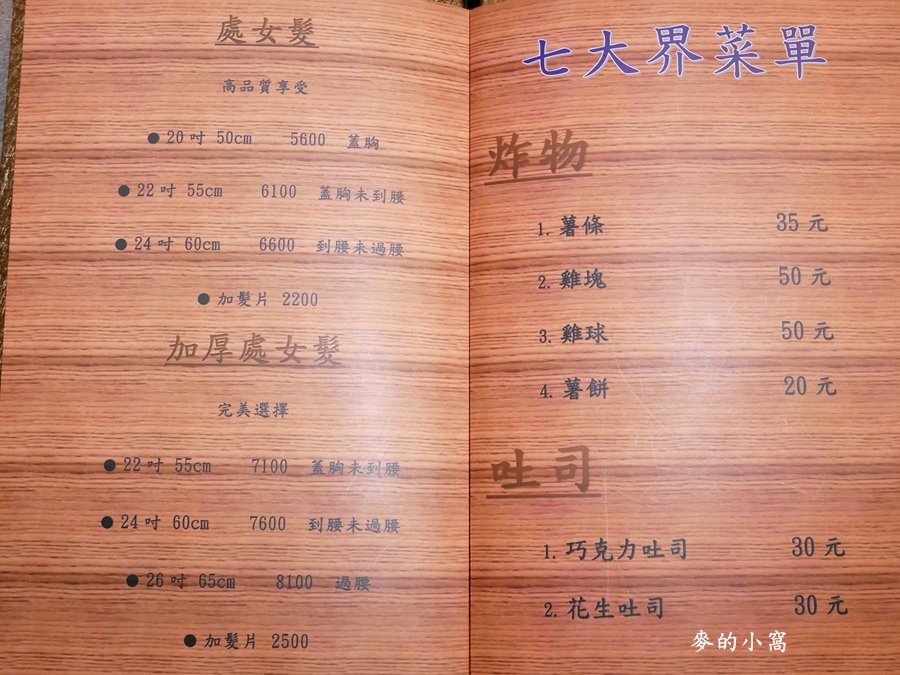 處女髮
高品質享受
● 20吋 50cm 5600 蓋胸
● 22吋 55cm 6100 蓋胸未到腰
● 24吋 60cm 6600 到腰未過腰
● 加髮片 2200
加厚處女髮
完美選擇
● 22吋 55cm 7100 蓋胸未到腰
● 24吋 60cm 7600 到腰未過腰
● 26吋 65cm 8100 過腰
● 加髮片 2500
七大界菜單
炸物
1. 薯條 35 元
2. 雞塊 50 元
3. 雞球 50 元
4. 薯餅 20 元
吐司
1. 巧克力吐司 30 元
2. 花生吐司 30 元
麥的小窩